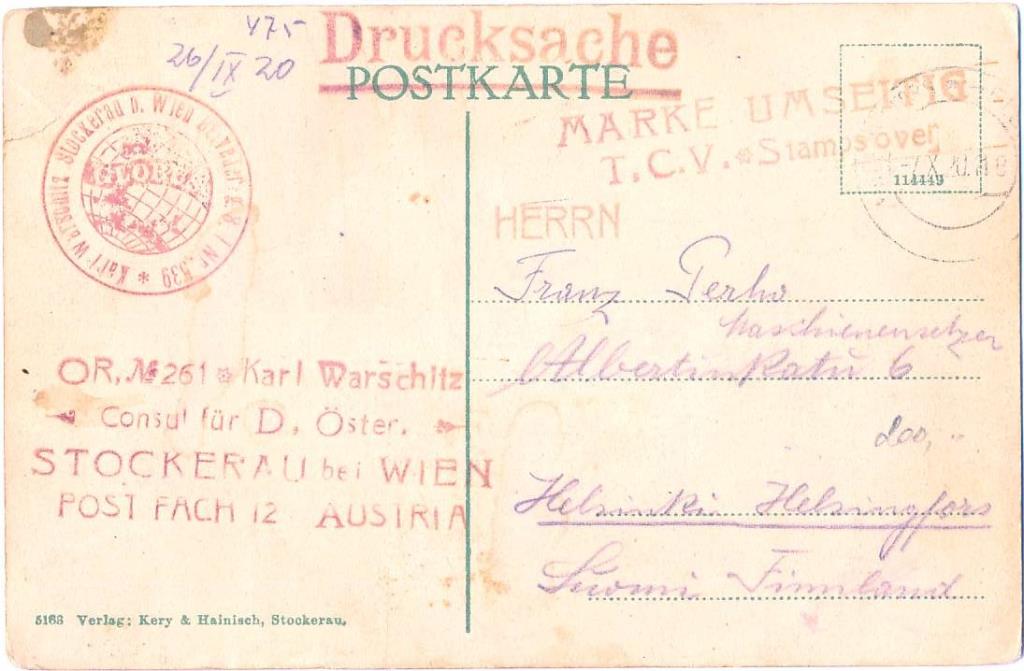 475
26/IX 20
Drucksache
POSTKARTE
MARKE UMSEITIG
T.C.V. * Stamps over
114449
Karl Warschitz Stockerau b. Wien
Nr. 539 *
GLOBUS
HERRN
Franz Perho
Maschienensetzer
Albertinkatu 6
200,--
Helsinki Helsingfors
Suomi Finnland
OR, № 261 * Karl Warschitz
Consul für D, Öster.
STOCKERAU bei WIEN
POST FACH 12 AUSTRIA
5163 Verlag: Kery & Hainisch, Stockerau.